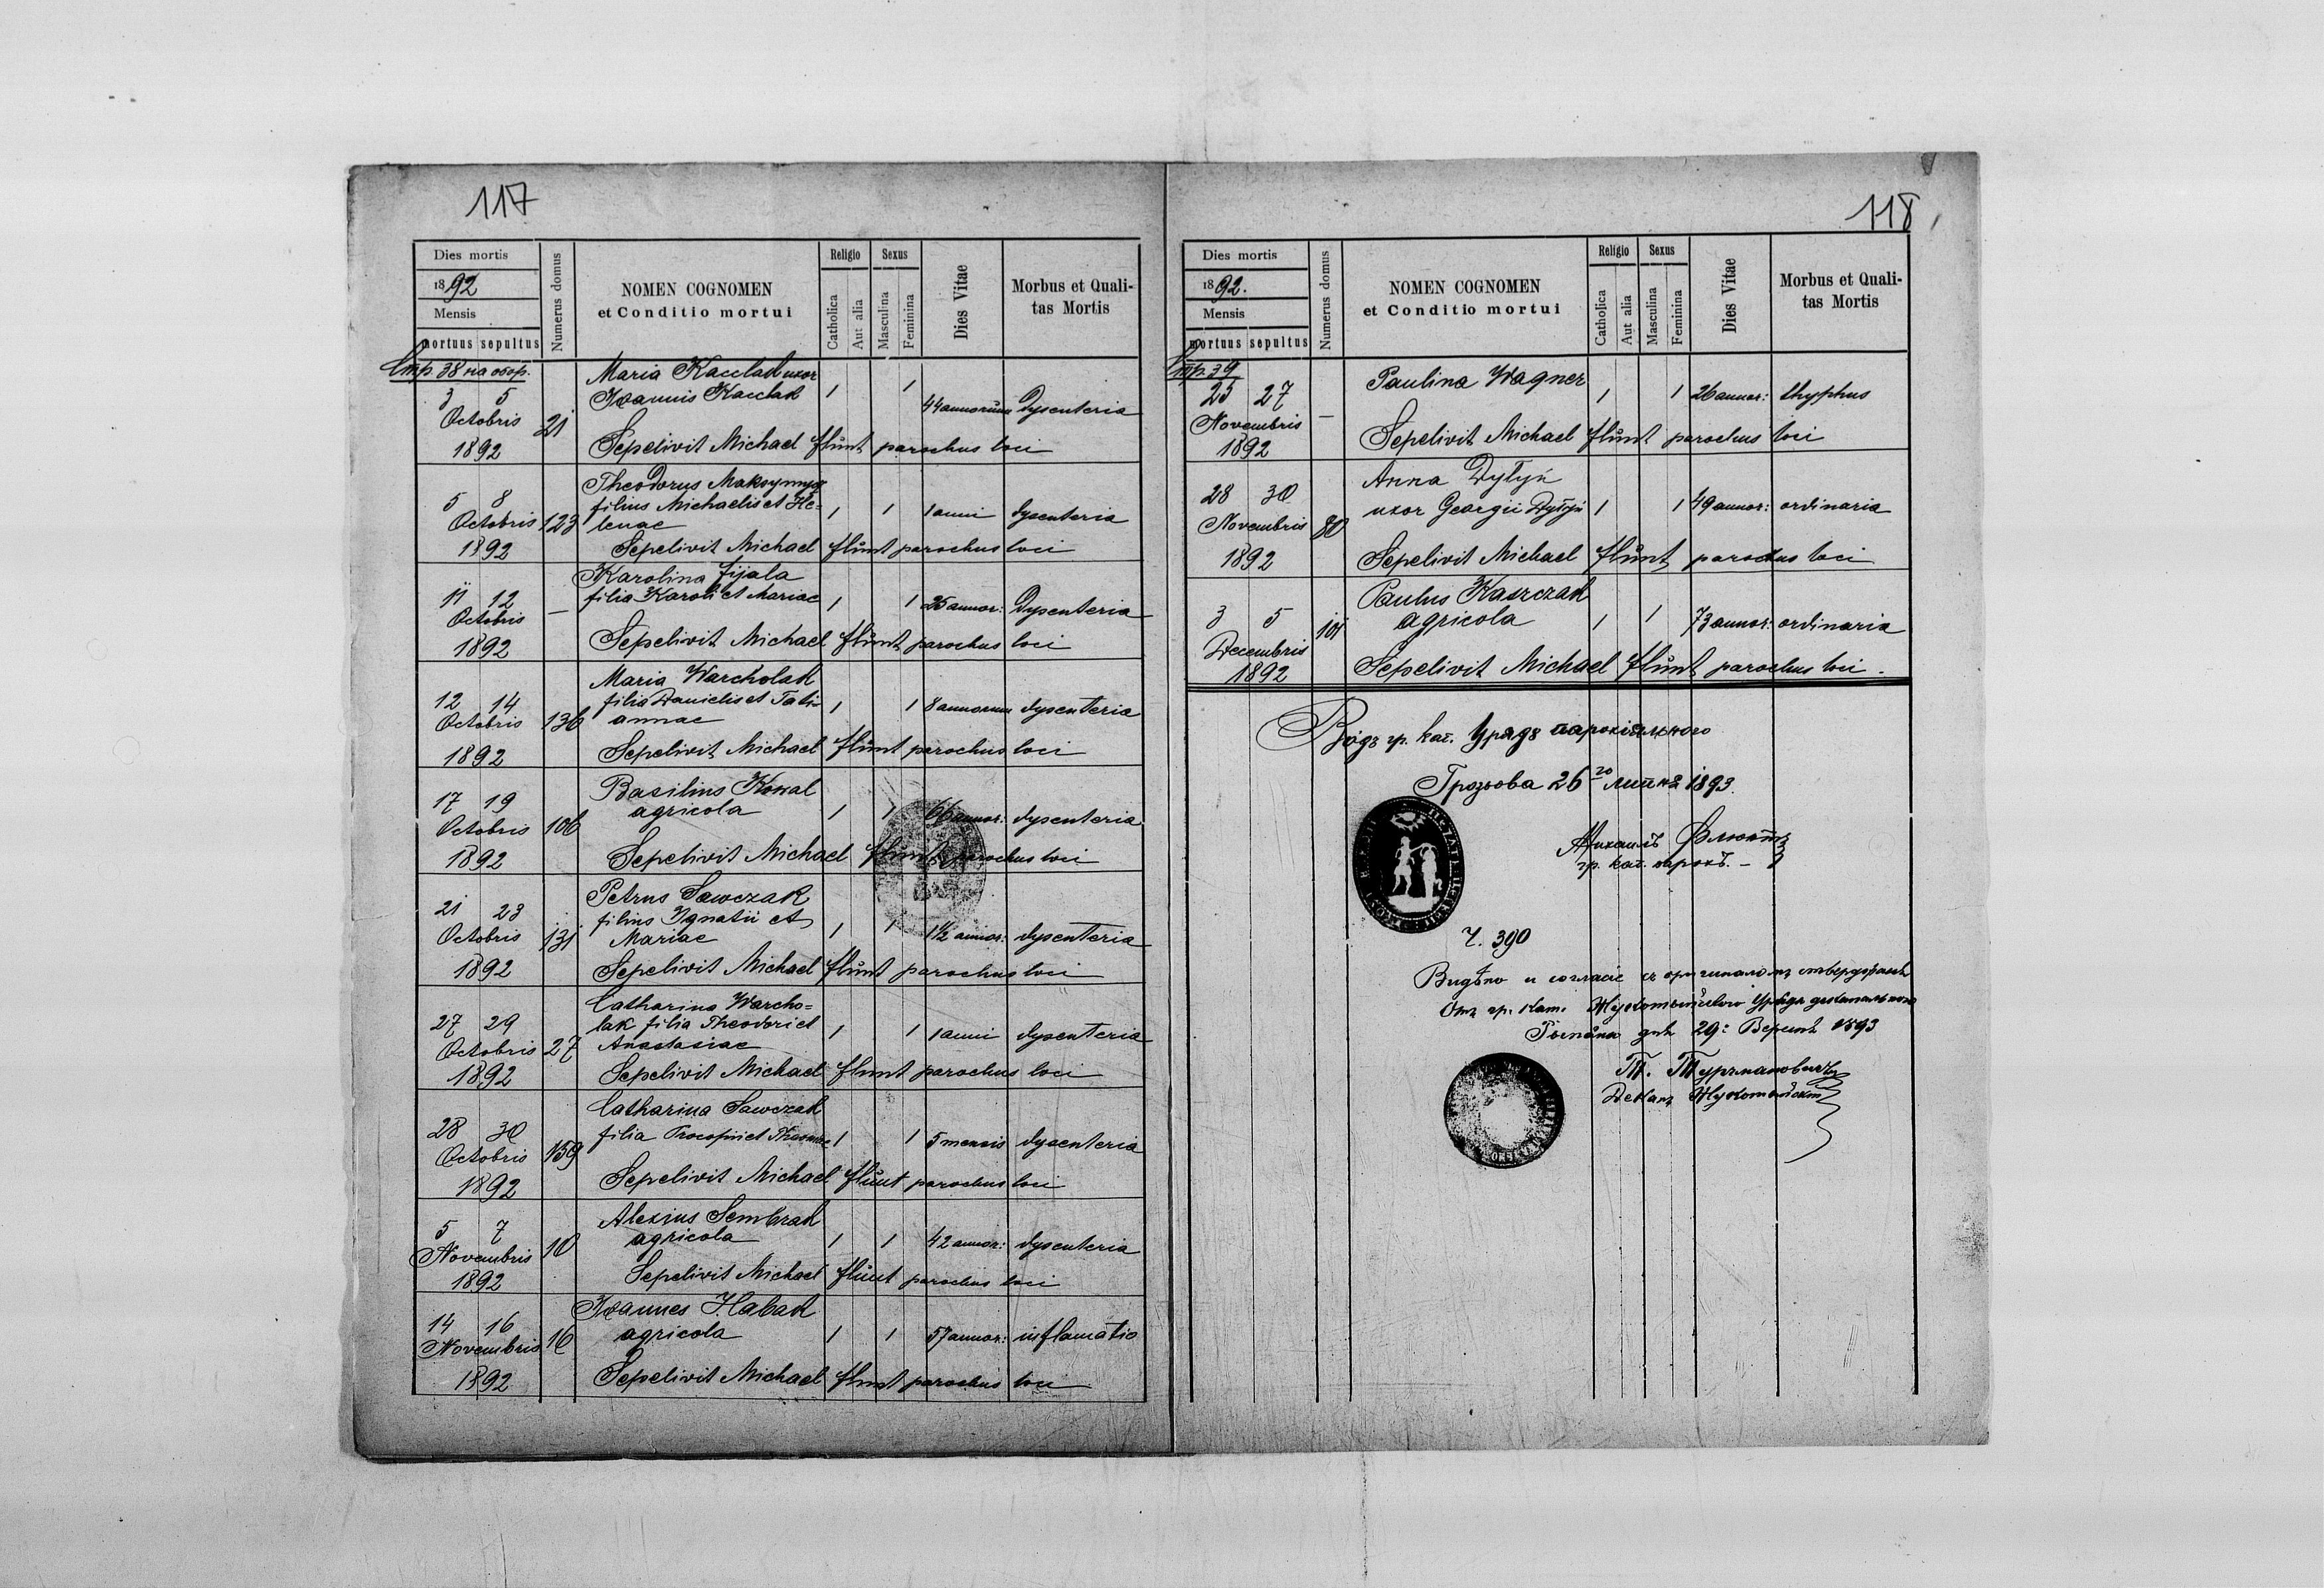 117
Dies mortis
1892
Mensis
mortuus sepultus
Numerus domus
NOMEN COGNOMEN
et Conditio mortui
Religio
Catholica
Aut alia
Sexus
Masculina
Feminina
Dies Vitae
Morbus et Quali-
tas Mortis
Стр. 38 на обор.
3 5
Octobris
1892
21
Maria uxor
Joannis
1 1
44 annorum Dysenteria
Sepelivit Michael Flünt parochus loci
5 8
Octobris
1892
123
Theodorus
filius Michaelis et He=
lenae
1 1 1 anni dysenteria
Sepelivit Michael Flünt parochus loci
11 12
Octobris
1892
—
Karolina Fijala
filia Karoli et Mariae
1 1 25 annor: Dysenteria
Sepelivit Michael Flünt parochus loci
12 14
Octobris
1892
136
Maria Warcholak
filia Danielis et Tati-
annae
1 1 8 annorum dysenteria
Sepelivit Michael Flünt parochus loci
17 19
Octobris
1892
106
Basilius Kowal
agricola
1 1 66 annor: dysenteria
Sepelivit Michael Flünt parochus loci
21 23
Octobris
1892
131
Petrus Sawczak
filius Ignatii et
Mariae
1 1 1½ annor: dysenteria
Sepelivit Michael Flünt parochus loci
27 29
Octobris
1892
27
Catharina Warcho=
lak filia Theodori et
Anastasiae
1 1 1 anni dysenteria
Sepelivit Michael Flünt parochus loci
28 30
Octobris
1892
159
Catharina Sawczak
filia Procopii et
1 1 5 mensis dysenteria
Sepelivit Michael Flünt parochus loci
5 7
Novembris
1892
10
Alexius Sembrak
agricola
1 1 42 annor: dysenteria
Sepelivit Michael Flünt parochus loci
14 16
Novembris
1892
16
Joannes Habak
agricola
1 1 57 annor: inflamatio
Sepelivit Michael Flünt parochus loci
118
Dies mortis
1892.
Mensis
mortuus sepultus
Numerus domus
NOMEN COGNOMEN
et Conditio mortui
Religio
Catholica
Aut alia
Sexus
Masculina
Feminina
Dies Vitae
Morbus et Quali-
tas Mortis
Стр. 39
25 27
Novembris
1892
—
Paulina Wagner
1 1 26 annor: thyphus
Sepelivit Michael Flünt parochus loci
28 30
Novembris
1892
80
Anna Dytyń
uxor Georgii Dytyń
1 1 49 annor: ordinaria
Sepelivit Michael Flünt parochus loci
3 5
Decembris
1892
101
Paulus Kaszczak
agricola
1 1 73 annor: ordinaria
Sepelivit Michael Flünt parochus loci.
Вôдъ гр. кат. Уряда парохіяльного
26 го липня 1893.
Михаилъ Флюнтъ
гр. кат. парохъ. —
Ч. 390
Видѣно и согласіе съ оригиналомъ
Отъ гр. кат.
дня 29: 1893
Т. Турманович
Деканъ